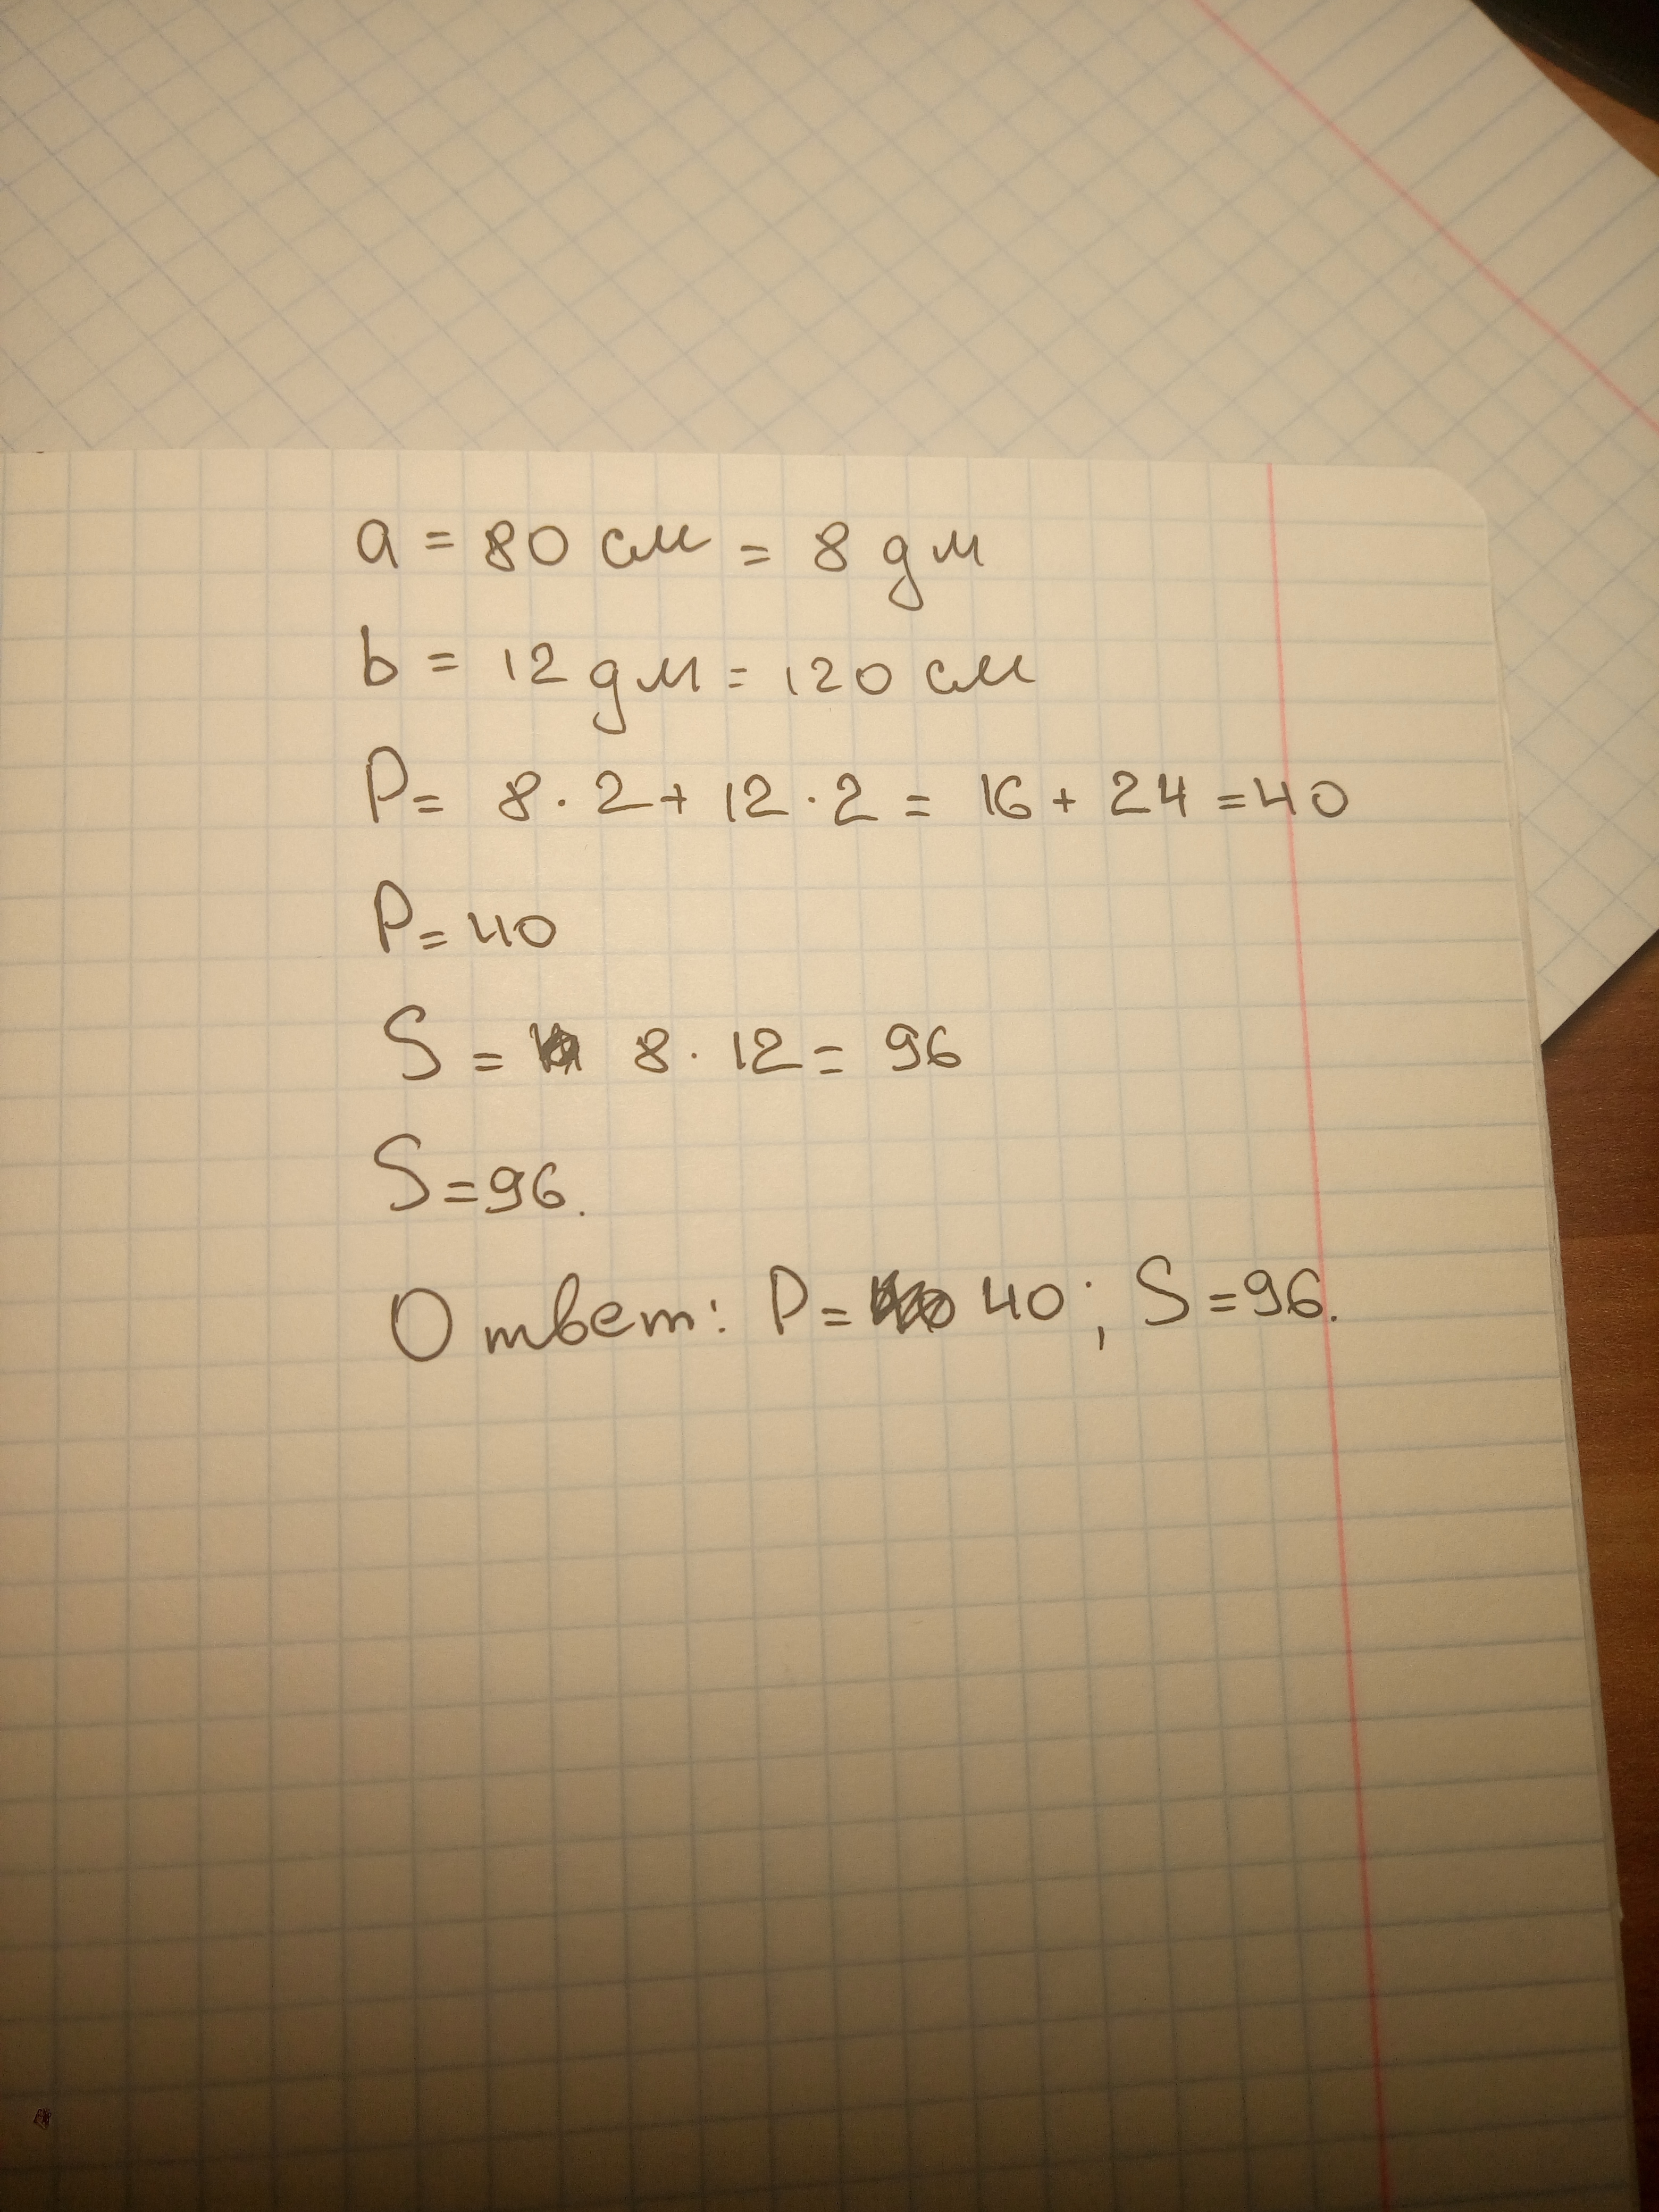 a = 80 см = 8 дм
b = 12 дм = 120 см
P = 8 · 2 + 12 · 2 = 16 + 24 = 40
P = 40
S = 8 · 12 = 96
S = 96.
Ответ: P = 40; S = 96.